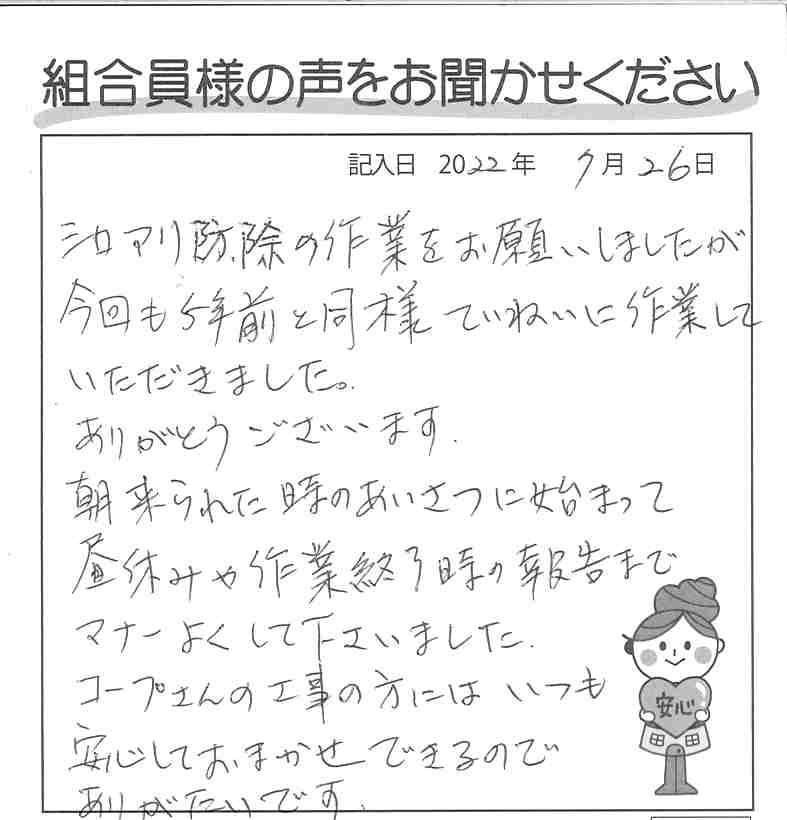 組合員様の声をお聞かせください
記入日 2022年 7月26日
シロアリ防除の作業をお願いしましたが
今回も5年前と同様ていねいに作業して
いただきました。
ありがとうございます.
朝来られた時のあいさつに始まって
昼休みや作業終了時の報告まで
マナーよくして下さいました.
コープさんの工事の方にはいつも
安心しておまかせできるので
ありがたいです.
安心